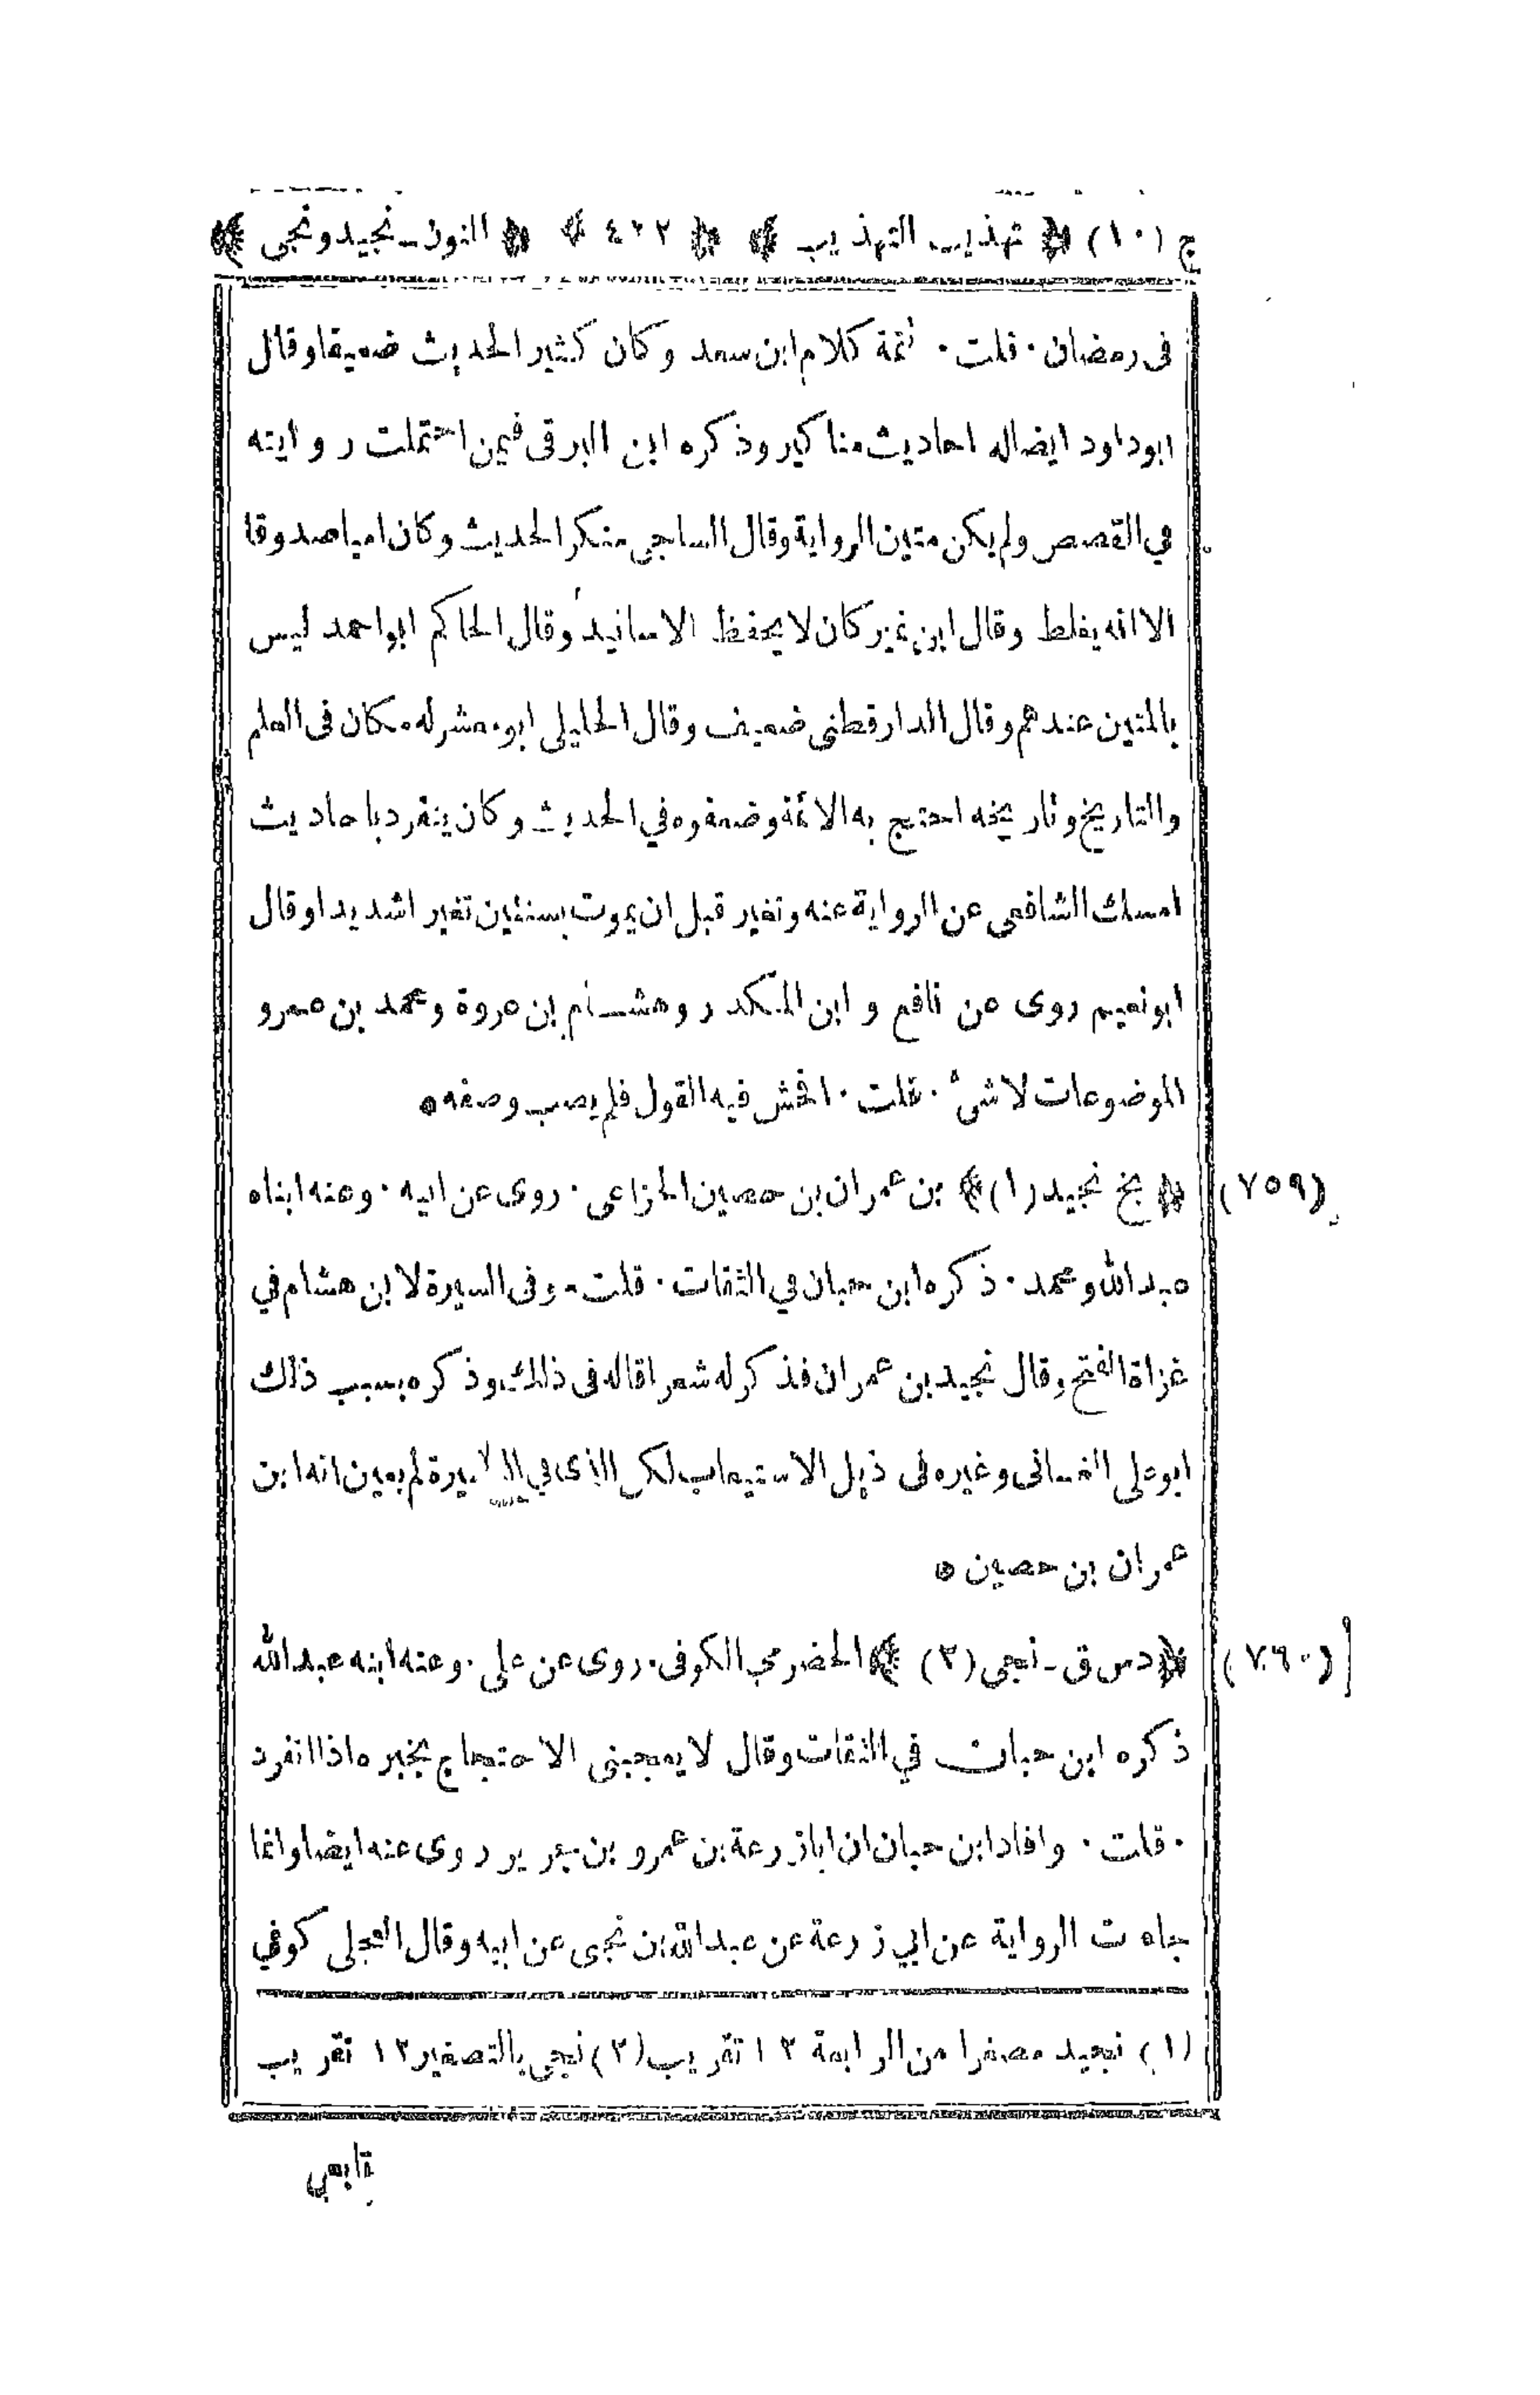 ج (١٠) ﴿ تهذيب التهذيب ﴾ ﴿ ٤٢٢ ﴾ ﴿ النون ـ نجيد ونجى ﴾
فى رمضان ٠ قلت ٠ تتمة كلام ابن سعد وكان كثير الحديث ضعيفا وقال
ابو داود ايضا له احاديث مناكير وذكره ابن البرقى فيمن احتملت روايته
في القصص ولم يكن متين الرواية وقال الساجى منكر الحديث وكان اميا صدوقا
الا انه يغلط وقال ابن نمير كان لا يحفظ الاسانيد وقال الحاكم ابو احمد ليس
بالمتين عندهم وقال الدارقطنى ضعيف وقال الخليلى ابو معشر له مكان فى العلم
والتاريخ وتاريخه احتج به الائمة وضعفوه في الحديث وكان ينفرد باحاديث
امسك الشافعى عن الرواية عنه وتغير قبل ان يموت بسنتين تغيرا شديدا وقال
ابو نعيم روى عن نافع وابن المنكدر وهشام بن عروة ومحمد بن عمرو
الموضوعات لا شىء ٠ قلت ٠ افحش فيه القول فلم يصب وصفه ٥
(٧٥٩) ﴿ بخ نجيد (١) ﴾ بن عمران بن حصين الخزاعى ٠ روى عن ابيه ٠ وعنه ابناه
عبد الله ومحمد ٠ ذكره ابن حبان في الثقات ٠ قلت ـ وفى السيرة لابن هشام في
غزاة الفتح وقال نجيد بن عمران فذكر له شعرا قاله فى ذلك وذكره بسبب ذلك
ابو على الغسانى وغيره فى ذيل الاستيعاب لكن الذى في السيرة لم يعين انه ابن
عمران بن حصين ٥
(٧٦٠) ﴿ د س ق ـ نجى (٢) ﴾ الحضرمى الكوفى ٠ روى عن على ٠ وعنه ابنه عبد الله
ذكره ابن حبان في الثقات وقال لا يعجبنى الاحتجاج بخبره اذا انفرد
٠ قلت ٠ وافاد ابن حبان ان ابا زرعة بن عمرو بن جرير روى عنه ايضا وانما
جاءت الرواية عن ابي زرعة عن عبد الله بن نجى عن ابيه وقال العجلى كوفي
(١) نجيد مصغرا من الرابعة ١٢ تقريب (٢) نجى بالتصغير ١٢ تقريب
تابعي